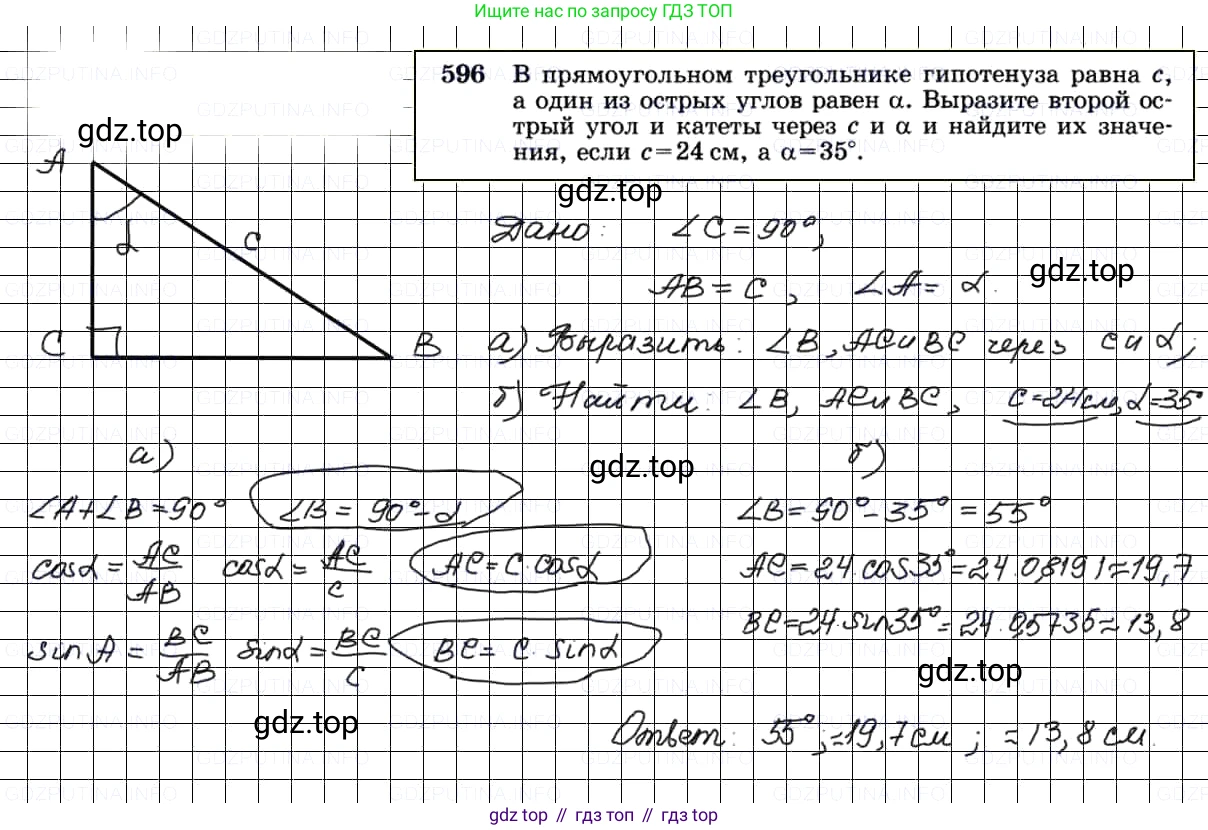 Ищите нас по запросу ГДЗ ТОП
596 В прямоугольном треугольнике гипотенуза равна c,
а один из острых углов равен α. Выразите второй ос-
трый угол и катеты через c и α и найдите их значе-
ния, если c=24 см, а α=35°.
gdz.top
gdz.top
A
α
C
C
B
Дано: ∠C=90°,
gdz.top
AB=C, ∠A=α.
а) Выразить: ∠B, AC и BC через C и α;
б) Найти: ∠B, AC и BC, C=24см, α=35°
а)
gdz.top
б)
∠A+∠B=90° ∠B=90°-α
∠B=90°-35°=55°
cosα=AC/AB cosα=AC/C AC=C·cosα
AC=24·cos35°=24·0,8191≈19,7
sinA=BC/AB sinα=BC/C BC=C·sinα
BC=24·sin35°=24·0,5735≈13,8
gdz.top
gdz.top
Ответ: 55°; ≈19,7см; ≈13,8 см.
gdz.top // гдз топ // gdz.top
GDZPUTINA.INFO